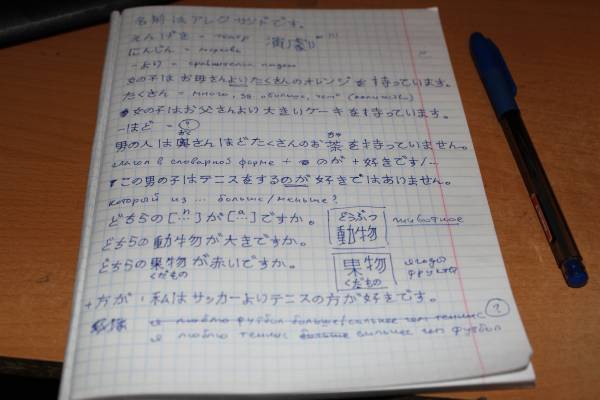 名前はアレクサンドです。
えんげき - театр 演劇
にんじん = морковь
-より -
女の子はお母さんよりたくさんのオレンジを持っています。
たくさん = много,
女の子はお父さんより大きいケーキを持っています。
-ほど = ?
男の人は奥さんほどたくさんのお茶を持っていません。
глагол в словарной форме + のが + 好きです/...
この男の子はテニスをするのが好きではありません。
который из ... больше/меньше?
どちらの[...]が[...]ですか。 どうぶつ 動物 животное
どちらの動物が大きですか。
どちらの果物が赤いですか。 くだもの 果物 くだもの ягоды фрукты
+方が 私はサッカーよりテニスの方が好きです。
я люблю футбол больше/сильнее чем теннис ?
я люблю теннис больше сильнее чем футбол